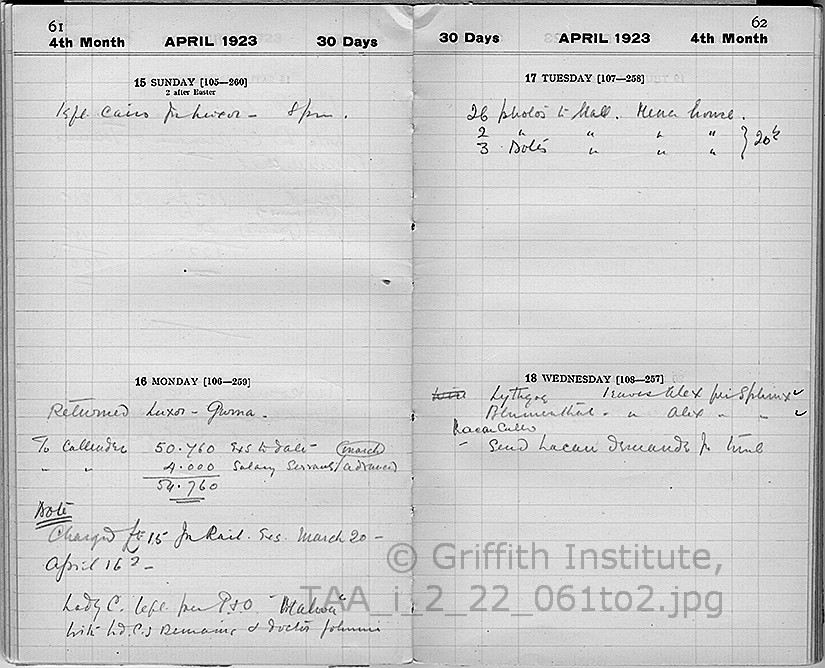 61
4th Month APRIL 1923 30 Days
15 SUNDAY [105—260]
2 after Easter
left Cairo for Luxor - 8 pm.
16 MONDAY [106—259]
Returned Luxor - Gurna.
To Callender 50.760 Exs to date - (March)
" " 4.000 Salary Servants/advanced
54.760
Note
Charged £E 15 for Rail. Exs. March 20 -
April 16
Lady C. left per P&O "Malwa"
with Ld. C's Remains & doctor Johnnie
62
30 Days APRIL 1923 4th Month
17 TUESDAY [107—258]
26 photos to Hall. Mena House.
2 " " " "
3 Notes " " "
18 WEDNESDAY [108—257]
Wire Lythgoe leaves Alex per Sphinx
Blumenthal - " Alex " "
- Send Lacau demands for tomb
© Griffith Institute,
TAA_i_2_22_061to2.jpg